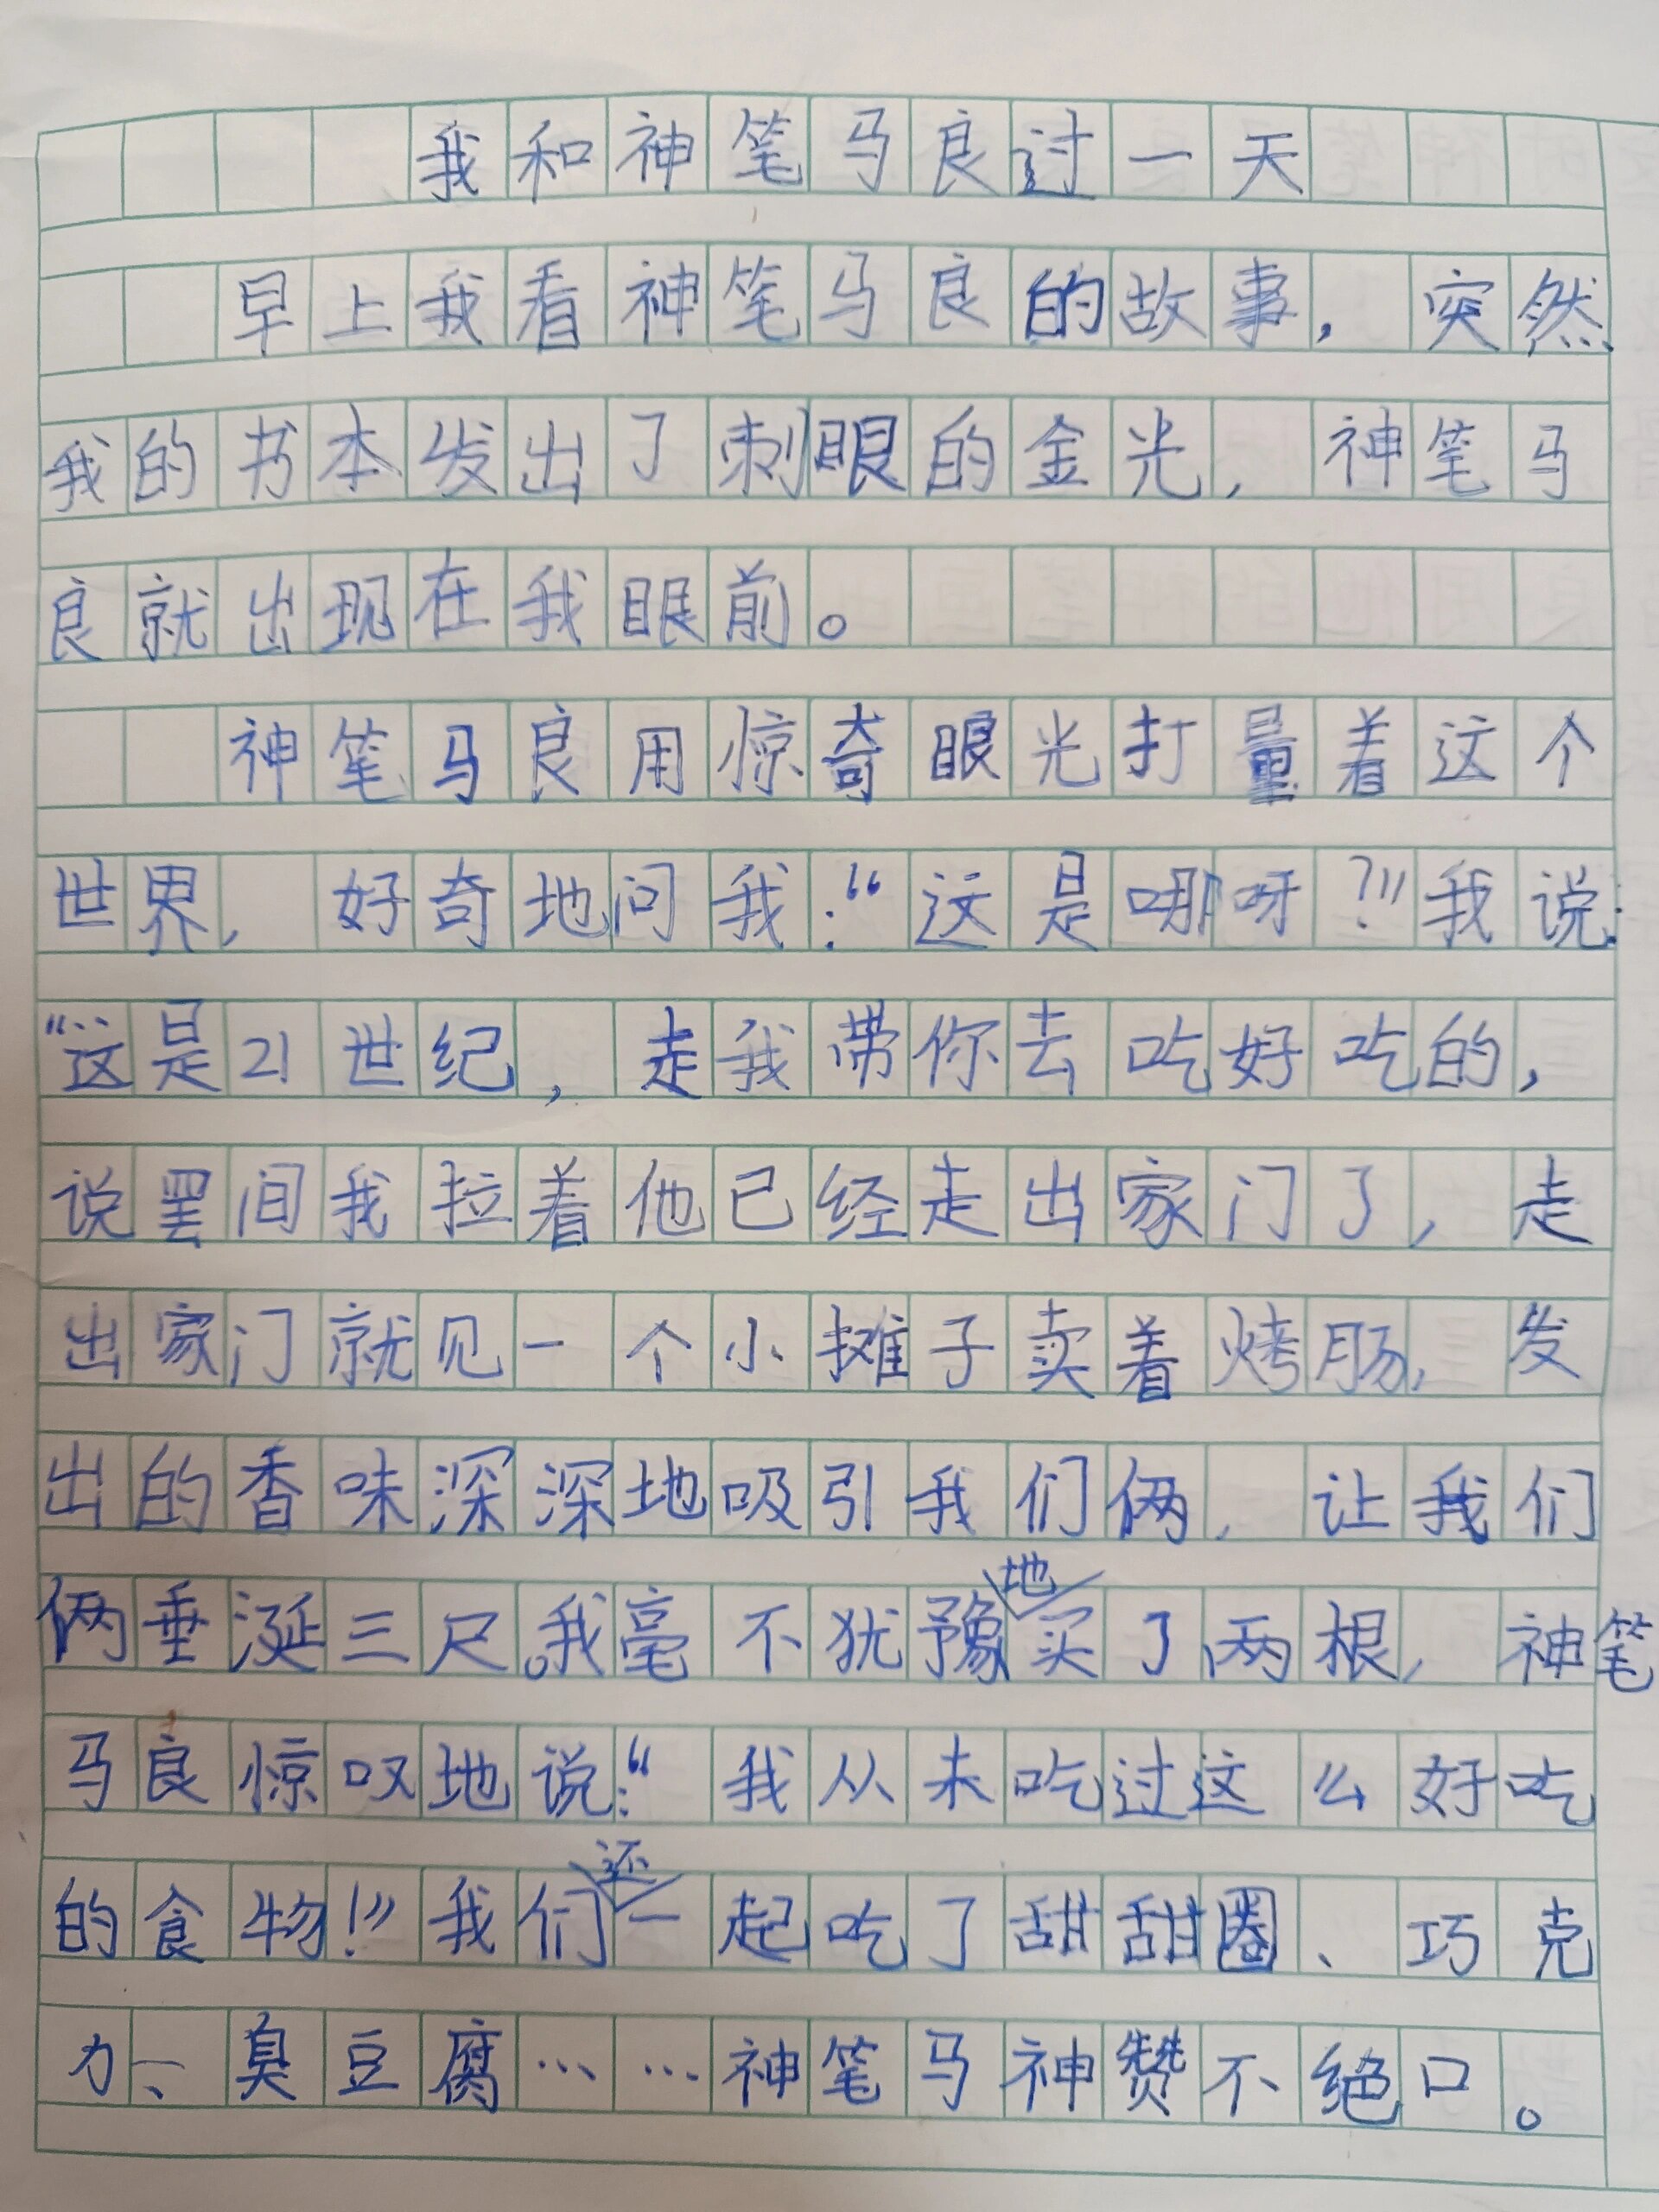 我和神笔马良过一天
早上我看神笔马良的故事，突然
我的书本发出了刺眼的金光，神笔马
良就出现在我眼前。
神笔马良用惊奇眼光打量着这个
世界，好奇地问我：“这是哪呀？！”我说：
“这是21世纪，走我带你去吃好吃的，
说罢间我拉着他已经走出家门了，走
出家门就见一个小摊子卖着烤肠，发
出的香味深深地吸引我们俩，让我们
俩垂涎三尺。我毫不犹豫地买了两根，神笔
马良惊叹地说：“我从未吃过这么好吃
的食物！”我们还一起吃了甜甜圈、巧克
力、臭豆腐……神笔马神赞不绝口。